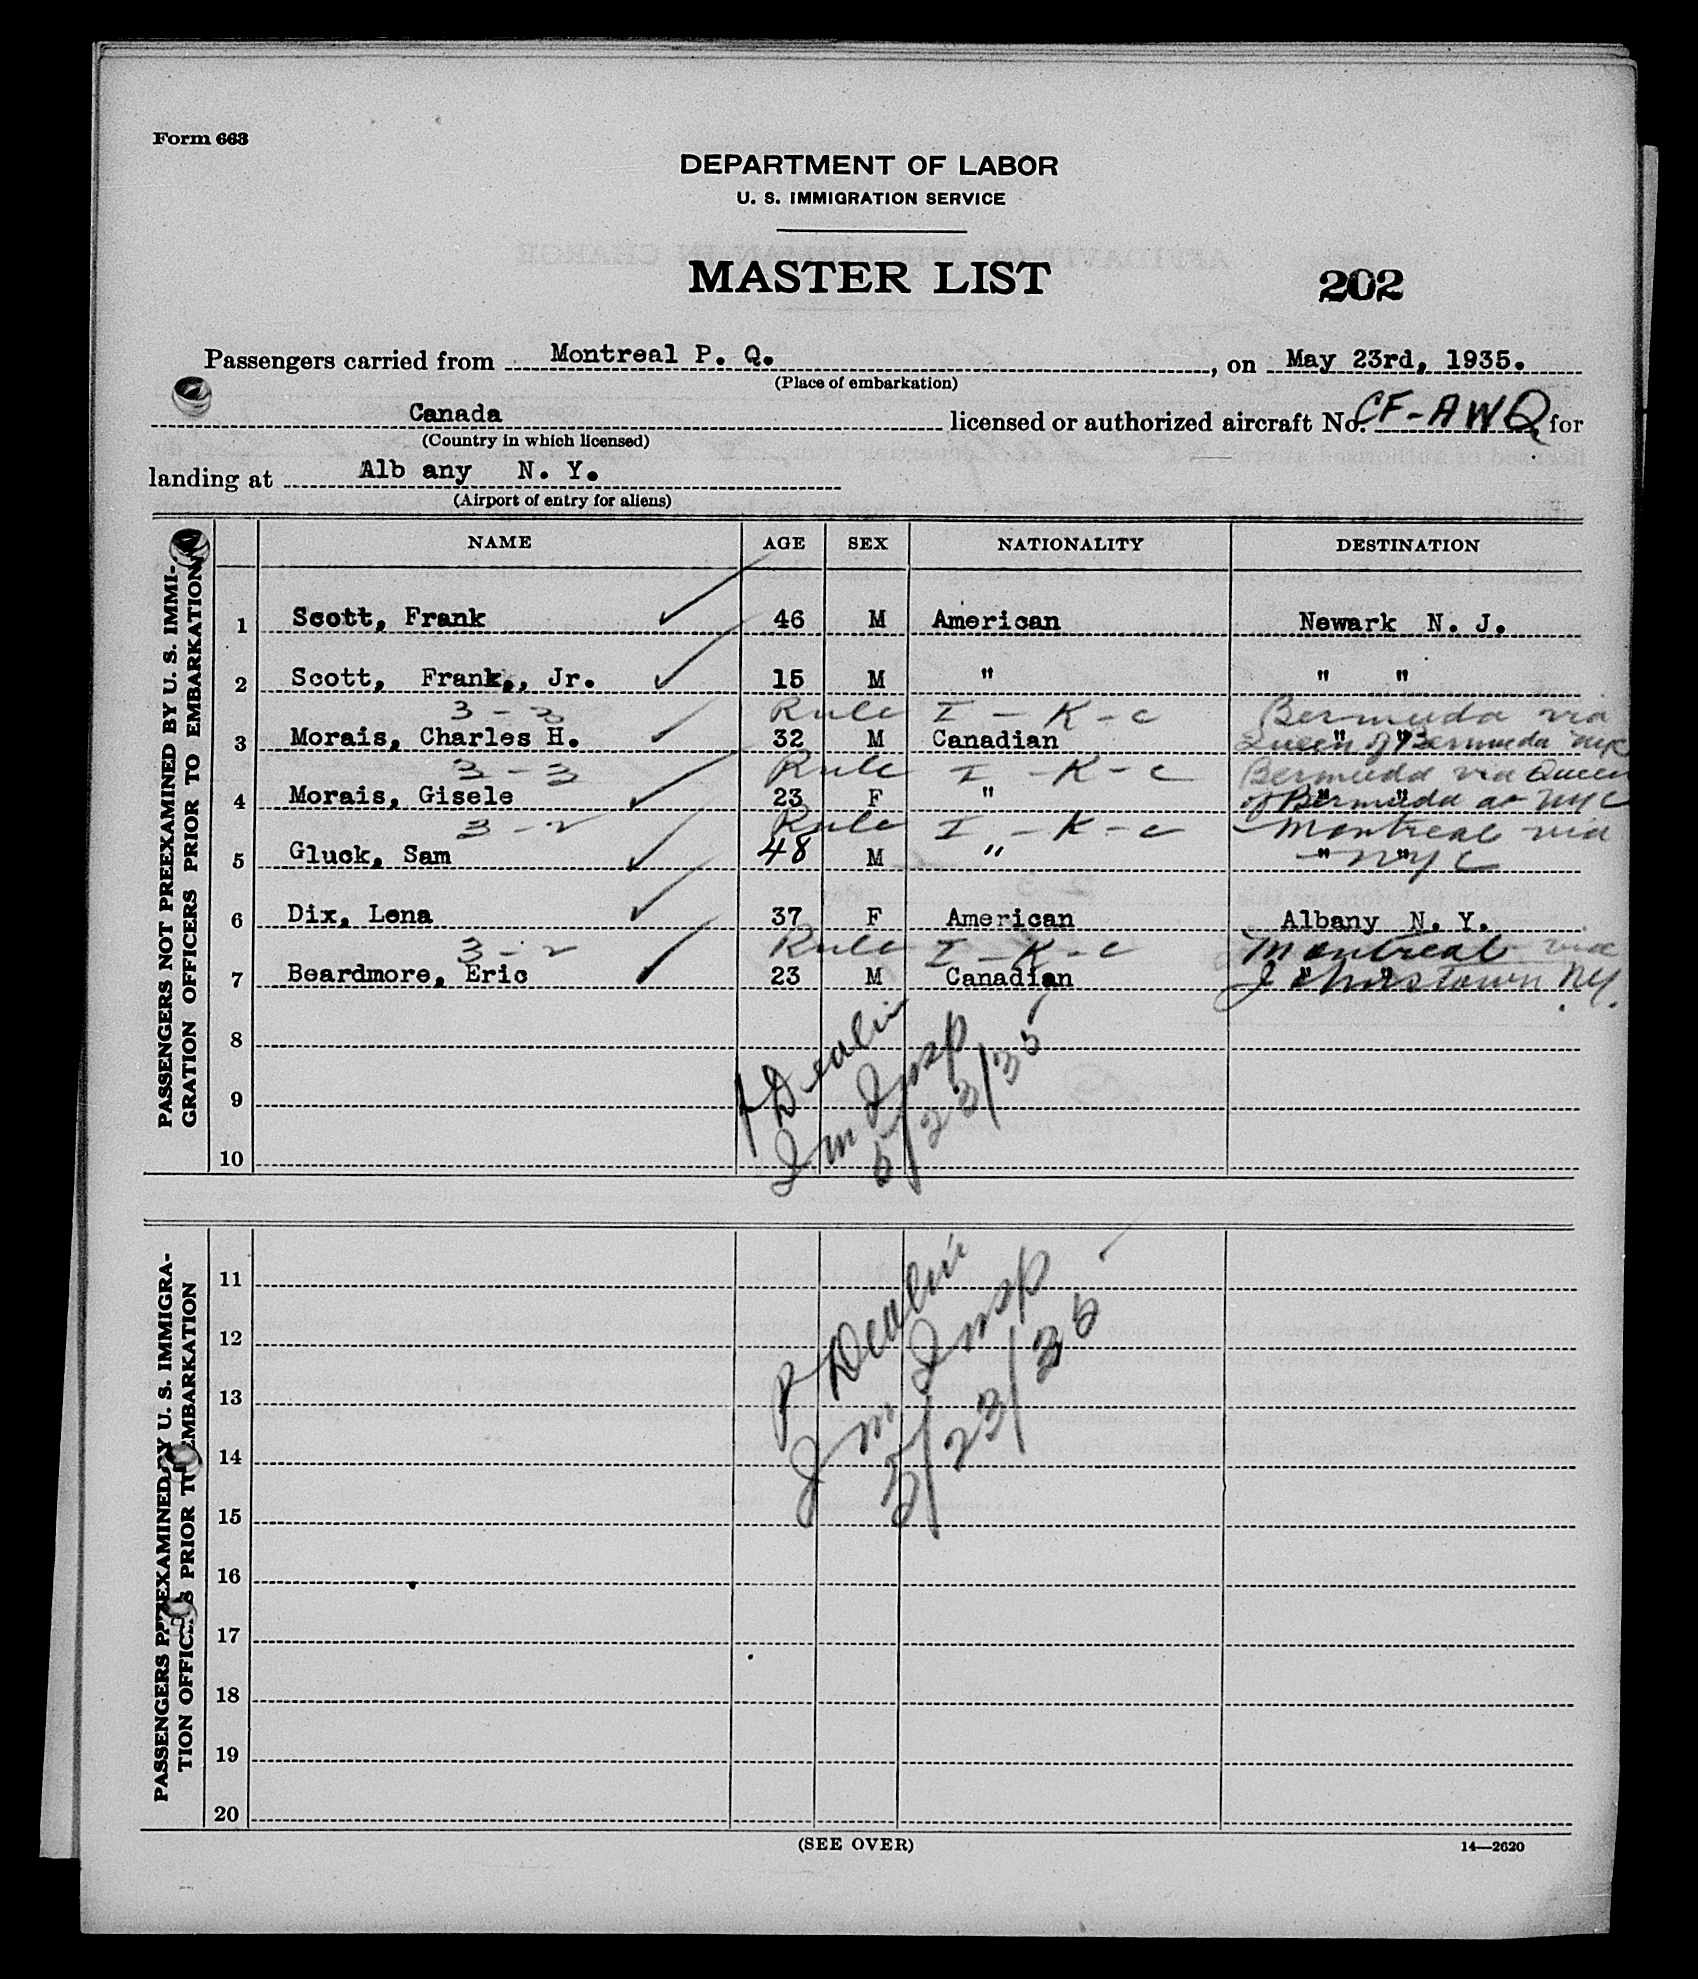 Form 663
DEPARTMENT OF LABOR
U. S. IMMIGRATION SERVICE
MASTER LIST
202
Passengers carried from Montreal P. Q. , on May 23rd, 1935.
(Place of embarkation)
Canada licensed or authorized aircraft No. CF-AWQ for
(Country in which licensed)
landing at Alb any N. Y.
(Airport of entry for aliens)
PASSENGERS NOT PREEXAMINED BY U. S. IMMI-
GRATION OFFICERS PRIOR TO EMBARKATION
NAME AGE SEX NATIONALITY DESTINATION
1 Scott, Frank 46 M American Newark N. J.
2 Scott, Frank., Jr. 15 M " " "
3-3 Rule I-K-c Bermuda via
3 Morais, Charles H. 32 M Canadian " " Queen of Bermuda NYC
3-3 Rule I-K-c Bermuda via Queen
4 Morais, Gisele 23 F " " " of Bermuda at NYC
3-2 Rule I-K-c Montreal via
5 Gluck, Sam 48 M " " " NYC
6 Dix, Lena 37 F American Albany N. Y.
3-2 Rule I-K-c Montreal via
7 Beardmore, Eric 23 M Canadian " " Johnstown NY.
8
9
10
Devlin
Im Insp
5/23/35
PASSENGERS PREEXAMINED BY U. S. IMMIGRA-
TION OFFICERS PRIOR TO EMBARKATION
11
12
13
14
15
16
17
18
19
20
Devlin
Im Insp
5/23/35
(SEE OVER)
14—2620